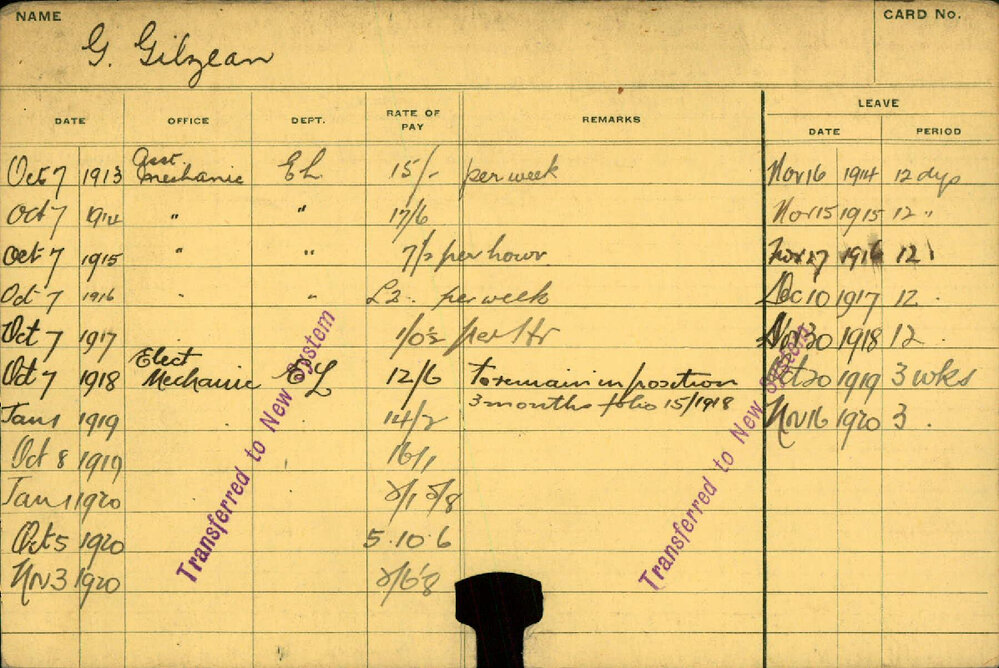 NAME
CARD No.
G. Gilzean
LEAVE
DATE OFFICE DEPT. RATE OF PAY REMARKS DATE PERIOD
Oct 7 1913 Asst. mechanic EL 15/- per week Nov 16 1914 12 dys
Oct 7 1914 " " 17/6 Nov 15 1915 12 "
Oct 7 1915 " " 7/2 per hour 27 1916 12
Oct 7 1916 " " £2. per week Dec 10 1917 12
Oct 7 1917 per Hr 30 1918 12
Oct 7 1918 Elect Mechanic EL 12/6 To remain in position Oct 20 1919 3 wks
3 months folio 15/1918
Jan 1 1919 14/2 Nov 16 1920 3
Oct 8 1919 16/1
Jan 1 1920
Oct 5 1920 5.10.6
Nov 3 1920
Transferred to New System
Transferred to New System